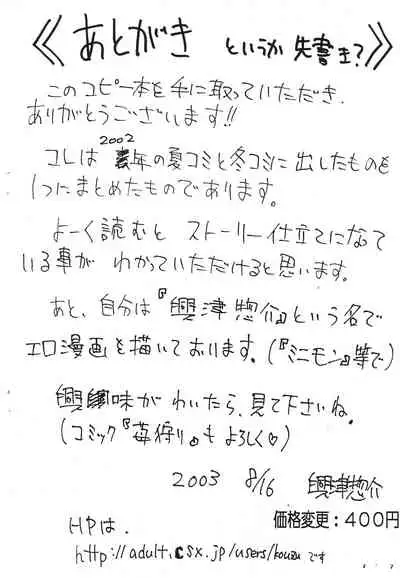 《あとがき というか 先書き?》
このコピー本を手に取っていただき、
ありがとうございます!!
コレは2002年の夏コミと冬コミに出したものを
1つにまとめたものであります。
よーく読むと ストーリー仕立てになって
いる事が わかっていただけると思います。
あと、自分は『興津惣介』という名で
エロ漫画を描いております。(『ミニモン』等で)
興味がわいたら、見て下さいね。
(コミック『苺狩り』もよろしく♡)
2003 8/16 興津惣介
価格変更:400円
HPは、
http://adult.csx.jp/users/kouzu です